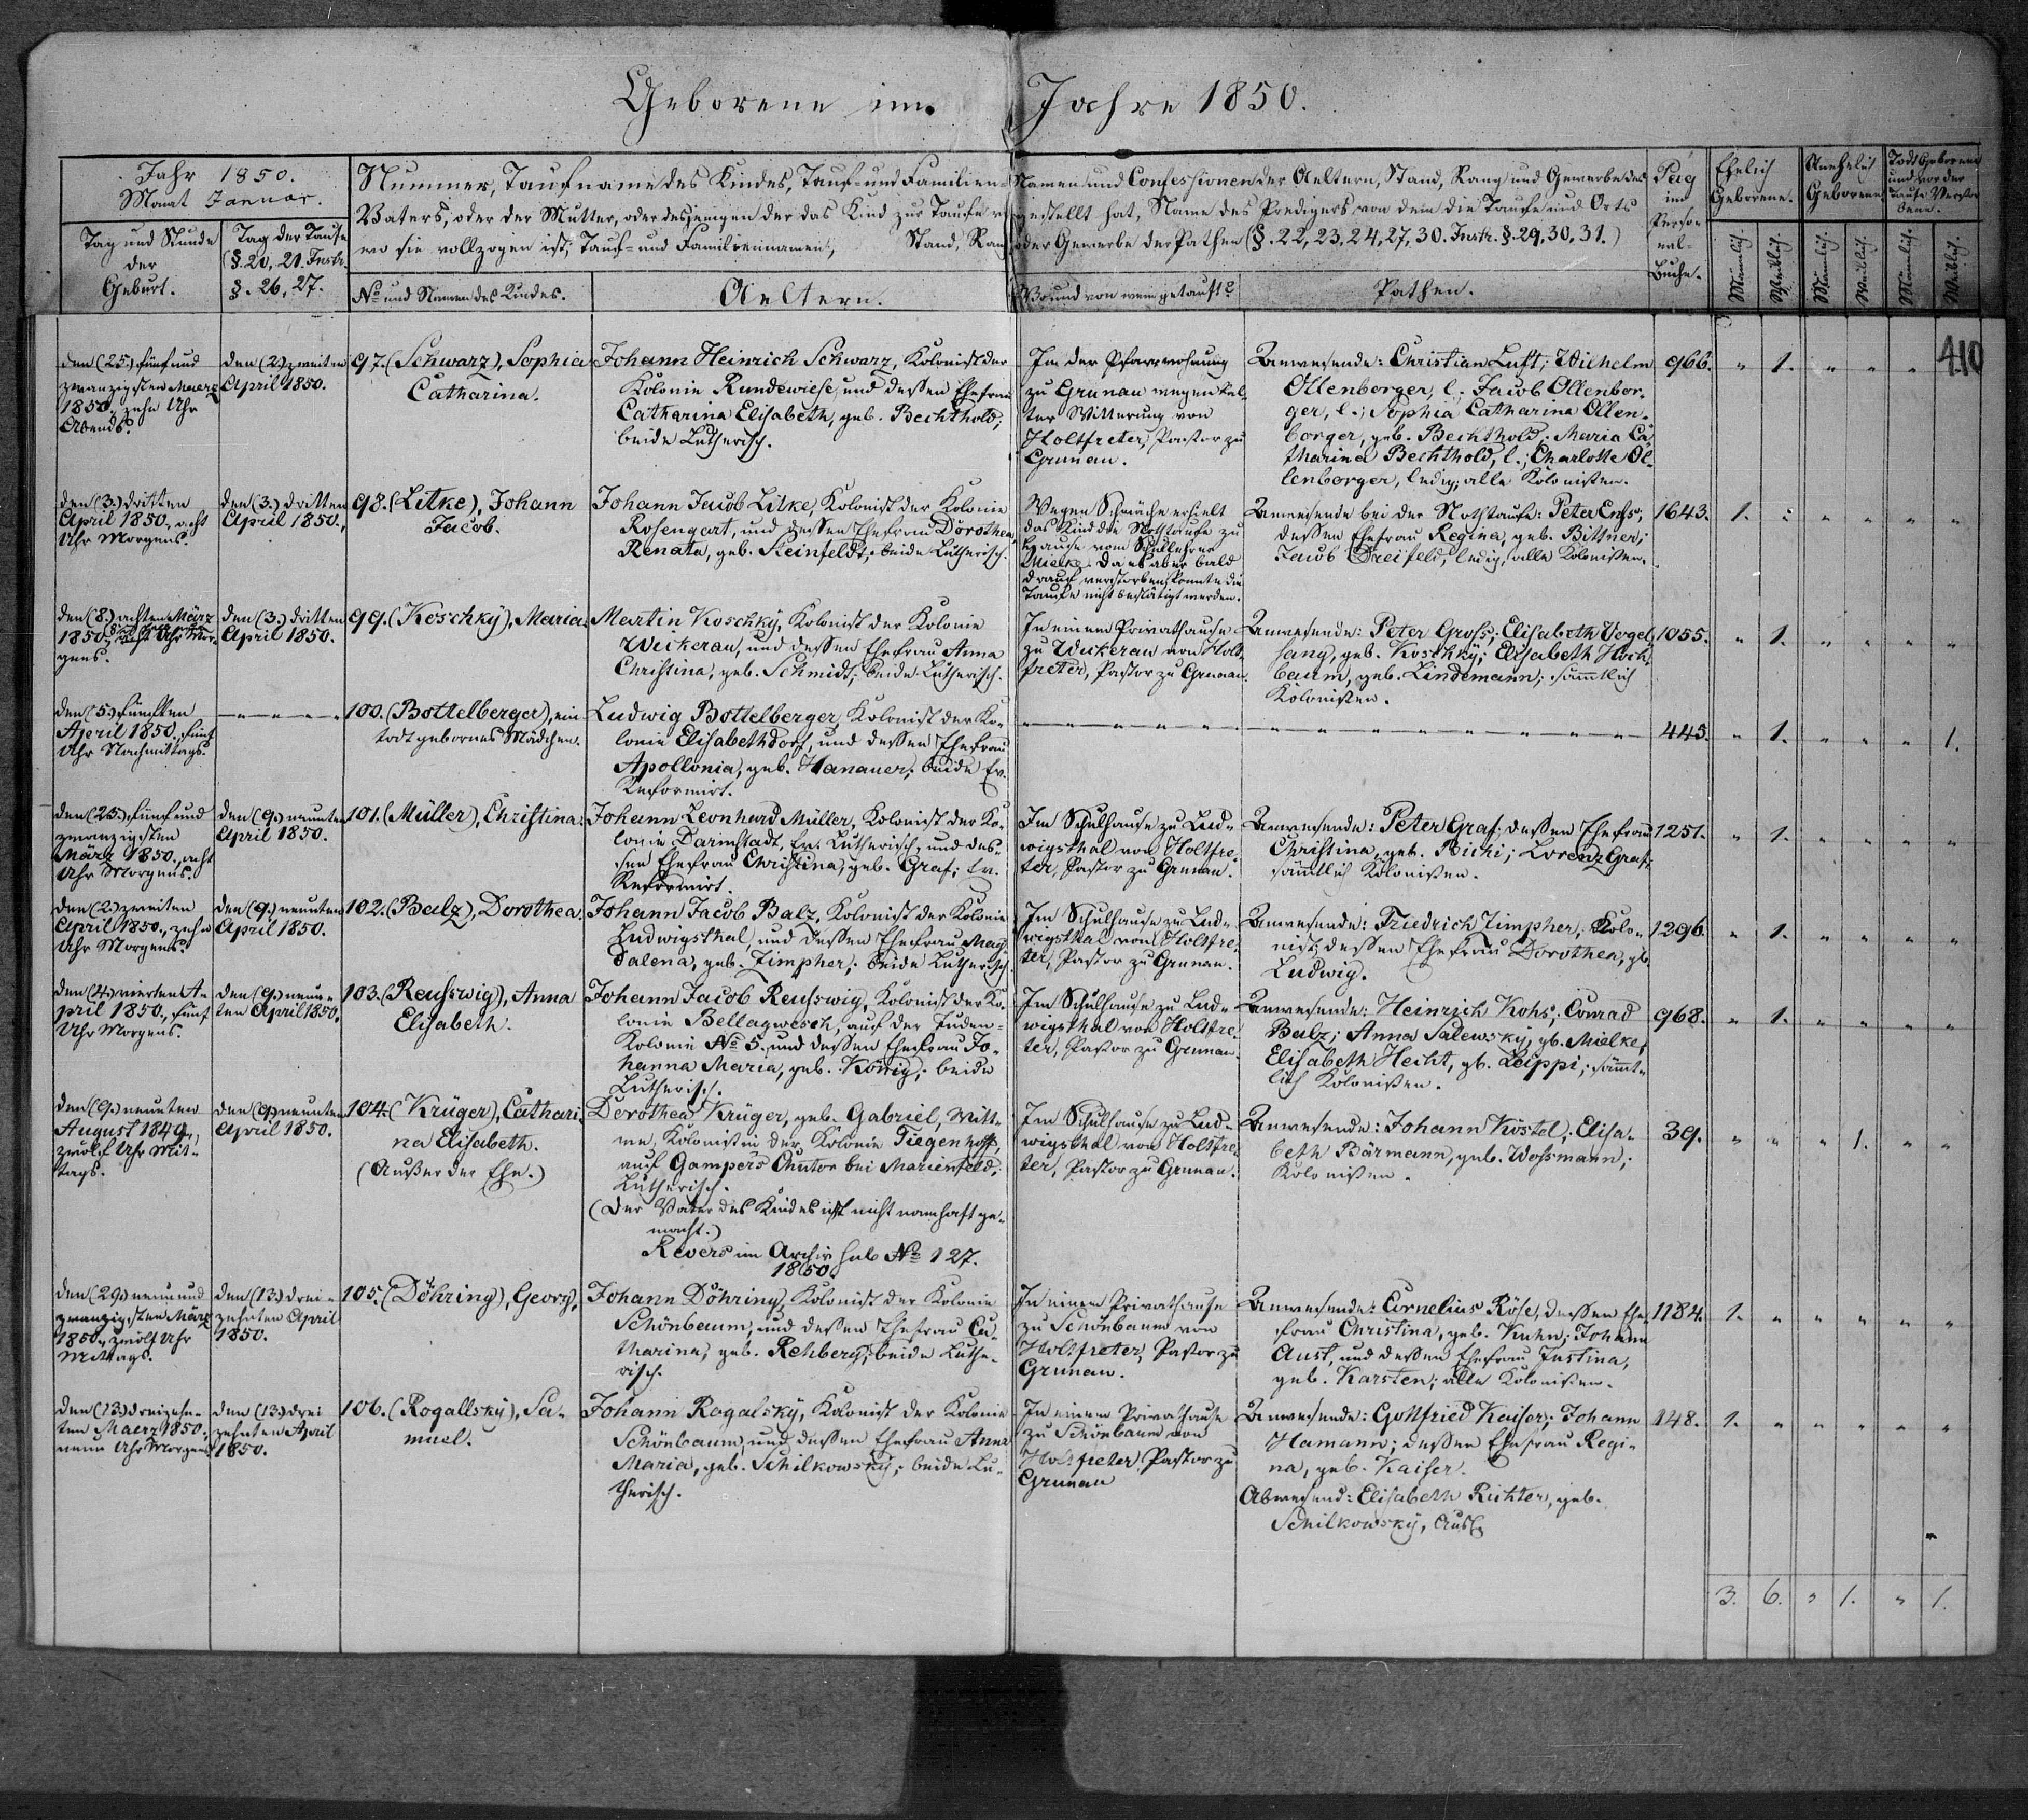 Geborene im Jahre 1850.
Jahr 1850.
Monat Januar.
Tag und Stunde
der
Geburt.
Tag der Taufe
(§. 20, 21. Instr.
§. 26, 27.
Nummer, Taufname des Kindes, Tauf- und Familien-
Vaters, oder der Mutter, oder desjenigen der das Kind zur Taufe
wo sie vollzogen ist; Tauf- und Familiennamen, Stand, Rang
No und Namen des Kindes.
Aeltern.
Namen und Confessionen der Aeltern, Stand, Rang und Gewerbe des
gestellt hat, Name des Predigers von dem die Taufe und Orts
oder Gewerbe der Pathen (§. 22, 23, 24, 27, 30. Instr. §. 29, 30, 31.)
Wo und von wem getauft?
Pathen.
Pag
im
Perso-
nal-
Buche.
Ehelich
Geborene.
Unehelich
Geborene
Todt Geborene
und vor der
Taufe Verstor
bene.
Männlich.
Weiblich.
Männlich.
Weiblich.
Männlich.
Weiblich.
410
den (25.) fünf und
zwanzigsten Maerz
1850., zehn Uhr
Abends.
den (2.) zweiten
April 1850.
97. (Schwarz), Sophia
Catharina.
Johann Heinrich Schwarz, Kolonist der
Kolonie Rundewiese, und dessen Ehefrau
Catharina Elisabeth, geb. Bechthold;
beide Lutherisch.
In der Pfarrwohnung
zu Grunau wegen kal-
ter Witterung von
Holtfreter, Pastor zu
Grunau.
Anwesende: Christian Luft; Wilhelm
Ollenborger, l.; Jacob Ollenbor-
ger, l.; Sophia Catharina Ollen-
borger, geb. Bechthold; Maria Ca-
tharina Bechthold, l.; Charlotte Ol-
lenborger, ledig; alle Kolonisten.
966. " 1. " " "
den (3.) dritten
April 1850., acht
Uhr Morgens.
den (3.) dritten
April 1850.
98. (Litke), Johann
Jacob.
Johann Jacob Litke, Kolonist der Kolonie
Rosengart, und dessen Ehefrau Dorothea
Renata, geb. Steinfeldt; beide Lutherisch.
Wegen Schwäche erhielt
das Kind die Nothtaufe zu
Hause vom Schullehrer
Mielke. Da es aber bald
drauf verstorben, konnte die
Taufe nicht bestätigt werden.
Anwesende bei der Nothtaufe: Peter Enss,
dessen Ehefrau Regina, geb. Bittner;
Jacob Dreifeld, ledig; alle Kolonisten.
1643. 1. " " " " "
den (8.) achten März
1850., acht Uhr Mor-
gens.
den (3.) dritten
April 1850.
99. (Koschky), Maria.
Martin Koschky, Kolonist der Kolonie
Wickerau, und dessen Ehefrau Anna
Christina, geb. Schmidt; beide Lutherisch.
In einem Privathause
zu Wickerau von Holt-
freter, Pastor zu Grunau.
Anwesende: Peter Gross; Elisabeth Vogel-
sang, geb. Koschky; Elisabeth Hoch-
baum, geb. Lindemann; sämtlich
Kolonisten.
1055. " 1. " " " "
den (5.) fünften
April 1850., fünf
Uhr Nachmittags.
100. (Bottelberger), ein
todt gebornes Mädchen.
Ludwig Bottelberger, Kolonist der Ko-
lonie Elisabethdorf, und dessen Ehefrau
Apollonia, geb. Hanauer; beide Ev.
Reformirt.
445. " 1. " " " 1.
den (25.) fünf und
zwanzigsten
März 1850., acht
Uhr Morgens.
den (9.) neunten
April 1850.
101. (Müller), Christina.
Johann Leonhard Müller, Kolonist der Ko-
lonie Darmstadt, Ev. Lutherisch, und des-
sen Ehefrau Christina, geb. Graf; Ev.
Reformirt.
Im Schulhause zu Lud-
wigsthal von Holtfre-
ter, Pastor zu Grunau.
Anwesende: Peter Graf; dessen Ehefrau
Christina, geb. Richi; Lorenz Graf;
sämtlich Kolonisten.
1251. " 1. " " " "
den (2.) zweiten
April 1850., zehn
Uhr Morgens.
den (9.) neunten
April 1850.
102. (Balz), Dorothea.
Johann Jacob Balz, Kolonist der Kolonie
Ludwigsthal, und dessen Ehefrau Mag-
dalena, geb. Zimpher; beide Lutherisch.
Im Schulhause zu Lud-
wigsthal von Holtfre-
ter, Pastor zu Grunau.
Anwesende: Friedrich Zimpher, Kolo-
nist; dessen Ehefrau Dorothea, gb.
Ludwig.
1296. " 1. " " " "
den (4.) vierten A-
pril 1850., fünf
Uhr Morgens.
den (9.) neun-
ten April 1850.
103. (Reusswig), Anna
Elisabeth.
Johann Jacob Reusswig, Kolonist der Ko-
lonie Bellagwesch, auf der Juden-
Kolonie No 5. und dessen Ehefrau Jo-
hanna Maria, geb. König; beide
Lutherisch.
Im Schulhause zu Lud-
wigsthal von Holtfre-
ter, Pastor zu Grunau.
Anwesende: Heinrich Kohs; Conrad
Balz; Anna Salewsky, gb. Mielke;
Elisabeth Hecht, gb. Leippi; sämt-
lich Kolonisten.
968. " 1. " " " "
den (9.) neunten
August 1849.,
zwölf Uhr Mit-
tags.
den (9.) neunten
April 1850.
104. (Krüger), Cathari-
na Elisabeth.
(Außer der Ehe.)
Dorothea Krüger, geb. Gabriel, Witt-
we, Kolonistin der Kolonie Tiegenhoff,
auf Gampers Chutor bei Marienfeld;
Lutherisch.
(Der Vater des Kindes ist nicht namhaft ge-
macht.)
Revers im Archiv sub No 127.
1850.
Im Schulhause zu Lud-
wigsthal von Holtfre-
ter, Pastor zu Grunau.
Anwesende: Johann Köstel; Elisa-
beth Bärmann, geb. Wossmann;
Kolonisten.
39. " " " 1. " "
den (29.) neun und
zwanzigsten März
1850., zwölf Uhr
Mittags.
den (13.) drei-
zehnten April
1850.
105. (Döhring), Georg.
Johann Döhring, Kolonist der Kolonie
Schönbaum, und dessen Ehefrau Ca-
tharina, geb. Rehberg; beide Luthe-
risch.
In einem Privathause
zu Schönbaum von
Holtfreter, Pastor zu
Grunau.
Anwesende: Cornelius Röse, dessen Ehe-
frau Christina, geb. Kuhn; Johann
Aust, und dessen Ehefrau Justina,
geb. Karsten; alle Kolonisten.
1184. 1. " " " " "
den (13.) dreizehn-
ten Maerz 1850.,
neun Uhr Morgens.
den (13.) drei
zehnten April
1850.
106. (Rogallsky), Sa-
muel.
Johann Rogalsky, Kolonist der Kolonie
Schönbaum, und dessen Ehefrau Anna
Maria, geb. Schilkowsky; beide Lu-
therisch.
In einem Privathause
zu Schönbaum von
Holtfreter, Pastor zu
Grunau
Anwesende: Gottfried Kaiser; Johann
Hamann; dessen Ehefrau Regi-
na, geb. Kaiser.
Abwesend: Elisabeth Richter, geb.
Schilkowsky,
148. 1. " " " " "
3. 6. " 1. " 1.